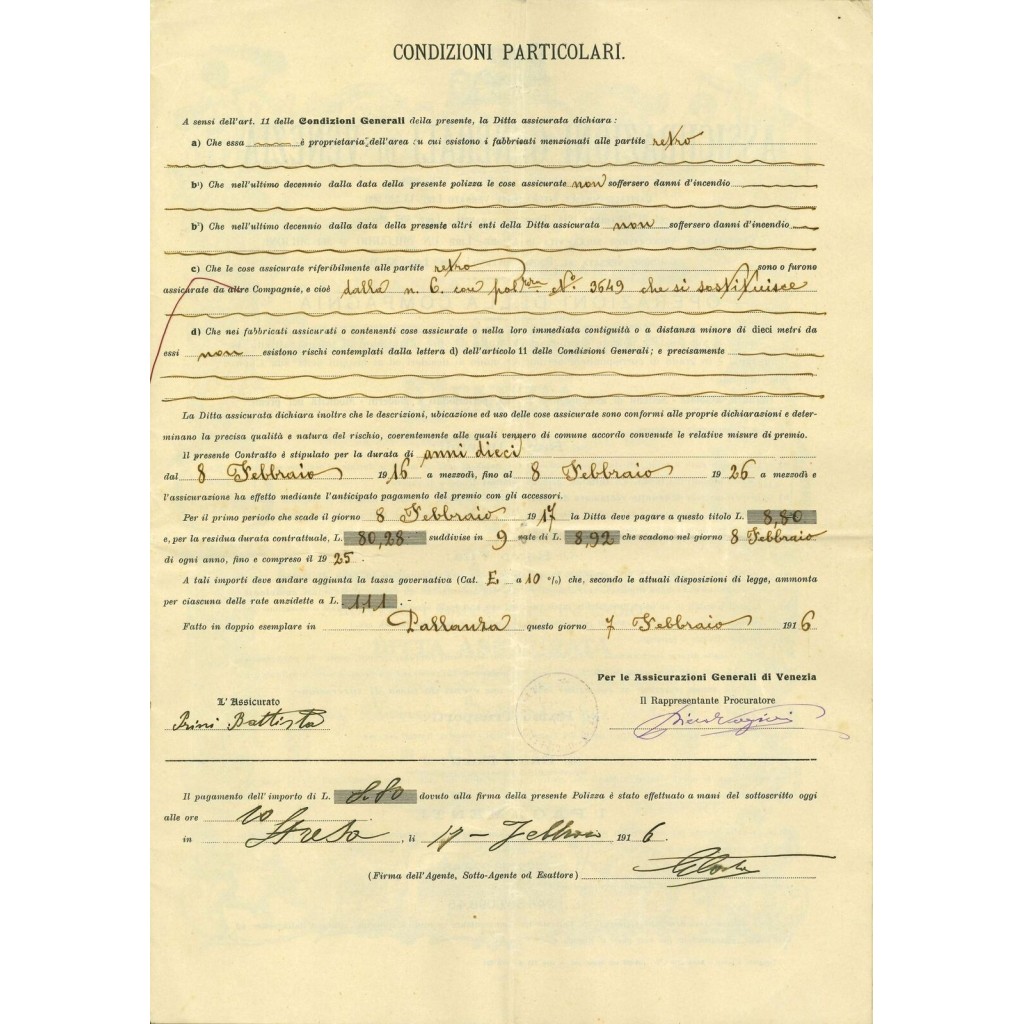 CONDIZIONI PARTICOLARI.
A sensi dell'art. 11 delle Condizioni Generali della presente, la Ditta assicurata dichiara :
a) Che essa è proprietaria dell'area su cui esistono i fabbricati menzionati alle partite retro
b¹) Che nell'ultimo decennio dalla data della presente polizza le cose assicurate non soffersero danni d'incendio
b²) Che nell'ultimo decennio dalla data della presente altri enti della Ditta assicurata non soffersero danni d'incendio
c) Che le cose assicurate riferibilmente alle partite retro sono o furono
assicurate da altre Compagnie, e cioè dalla n. 6. con pol.zza N.º 3649 che si sostituisce
d) Che nei fabbricati assicurati o contenenti cose assicurate o nella loro immediata contiguità o a distanza minore di dieci metri da
essi non esistono rischi contemplati dalla lettera d) dell'articolo 11 delle Condizioni Generali; e precisamente
La Ditta assicurata dichiara inoltre che le descrizioni, ubicazione ed uso delle cose assicurate sono conformi alle proprie dichiarazioni e deter-
minano la precisa qualità e natura del rischio, coerentemente alle quali vennero di comune accordo convenute le relative misure di premio.
Il presente Contratto è stipulato per la durata di anni dieci
dal 8 Febbraio 1916 a mezzodì, fino al 8 Febbraio 1926 a mezzodì e
l'assicurazione ha effetto mediante l'anticipato pagamento del premio con gli accessori.
Per il primo periodo che scade il giorno 8 Febbraio 1917 la Ditta deve pagare a questo titolo L. 8,80
e, per la residua durata contrattuale, L. 80,28 suddivise in 9 rate di L. 8,92 che scadono nel giorno 8 Febbraio
di ogni anno, fino e compreso il 1925.
A tali importi deve andare aggiunta la tassa governativa (Cat. E a 10 %) che, secondo le attuali disposizioni di legge, ammonta
per ciascuna delle rate anzidette a L. 1,11. -
Fatto in doppio esemplare in Pallanza questo giorno 7 Febbraio 1916
Per le Assicurazioni Generali di Venezia
L'Assicurato Il Rappresentante Procuratore
Battista
Il pagamento dell'importo di L. 8.80 dovuto alla firma della presente Polizza è stato effettuato a mani del sottoscritto oggi
alle ore 10
in Stresa, li 17 - Febbraio 1916.
(Firma dell'Agente, Sotto-Agente od Esattore)